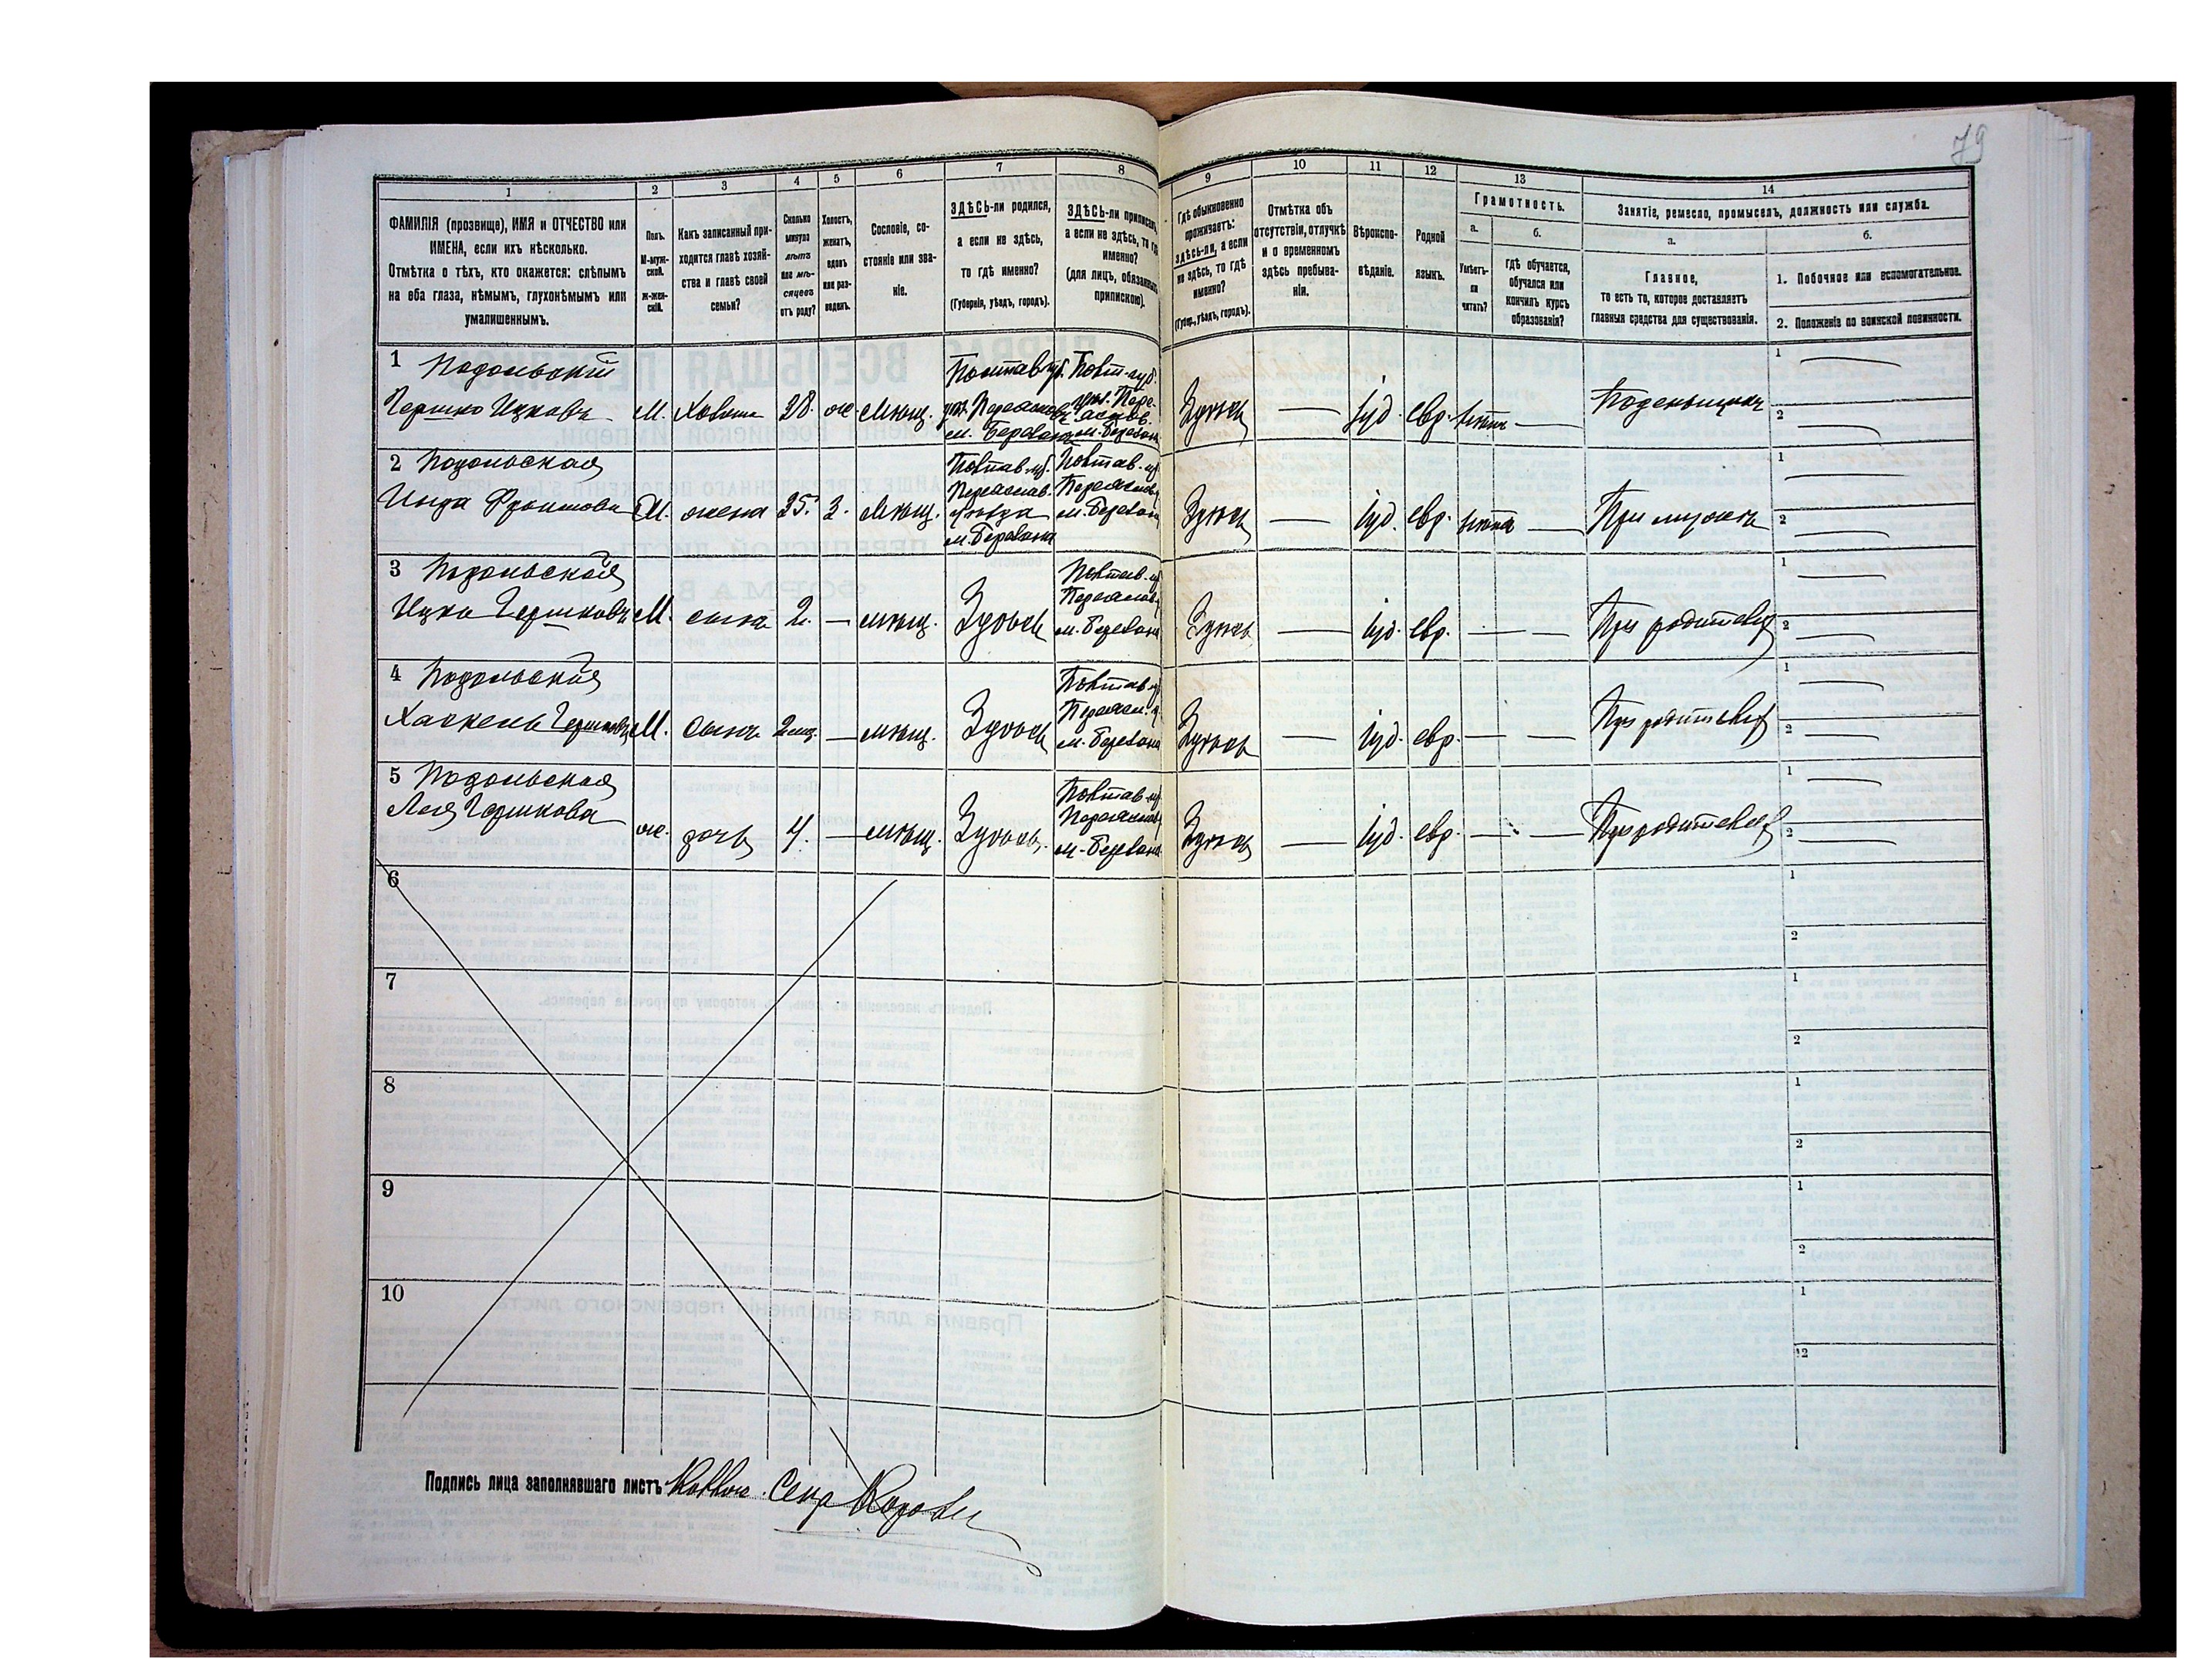 79
1
2
3
4
5
6
7
8
9
10
11
12
13
14
ФАМИЛІЯ (прозвище), ИМЯ и ОТЧЕСТВО или
ИМЕНА, если ихъ нѣсколько.
Отмѣтка о тѣхъ, кто окажется: слѣпымъ
на оба глаза, нѣмымъ, глухонѣмымъ или
умалишеннымъ.
Полъ.
М-муж-
ской.
ж-жен-
скій.
Какъ записанный при-
ходится главѣ хозяй-
ства и главѣ своей
семьи?
Сколько
минуло
лѣтъ
или мѣ-
сяцевъ
отъ роду?
Холостъ,
женатъ,
вдовъ
или раз-
веденъ.
Сословіе, со-
стояніе или зва-
ніе.
ЗДѢСЬ-ли родился,
а если не здѣсь,
то гдѣ именно?
(Губернія, уѣздъ, городъ).
ЗДѢСЬ-ли приписанъ,
а если не здѣсь, то гдѣ
именно?
(для лицъ, обязанныхъ
припискою).
Гдѣ обыкновенно
проживаетъ:
здѣсь-ли, а если
не здѣсь, то гдѣ
именно?
(Губер., уѣздъ, городъ).
Отмѣтка объ
отсутствіи, отлучкѣ
и о временномъ
здѣсь пребыва-
ніи.
Вѣроиспо-
вѣданіе.
Родной
языкъ.
Грамотность.
а.
Умѣетъ-
ли
читать?
б.
гдѣ обучается,
обучался или
кончилъ курсъ
образованія?
Занятіе, ремесло, промыселъ, должность или служба.
а.
Главное,
то есть то, которое доставляетъ
главныя средства для существованія.
б.
1. Побочное или вспомогательное.
2. Положеніе по воинской повинности.
1 Подольскій
Гершко Ицковъ М. Хозяинъ 28. ж. Мѣщ.
Полтав. губ.
уѣз. Переяслов.
м. Березань
Полт. губ.
уѣз. Пере-
яслов.
м. Березань
Здѣсь — іуд. евр. нѣтъ — Поденьщикъ
1 —
2 —
2 Подольская
Файтова жена 25. З. Мѣщ.
Полтав. губ.
Переяслав.
уѣзда
м. Березань
Полтав. губ.
Переяслав.
м. Березань
Здѣсь — іуд. евр. нѣтъ — При мужѣ
1 —
2 —
3 Подольскій
Ицко Гершковъ М. сынъ 2. — мѣщ. Здѣсь
Полтав. губ.
Переяслав.
м. Березань
Здѣсь — іуд. евр. — — При родителях
1 —
2 —
4 Подольскій
Хаскель Гершковъ М. сынъ 2 мц. — мѣщ. Здѣсь
Полтав. губ.
Переясл. у.
м. Березань
Здѣсь — іуд. евр. — — При родителях
1 —
2 —
5 Подольская
Лея Гершкова ж. дочь 4. — мѣщ. Здѣсь.
Полтав. губ.
Переяслав.
м. Березань
Здѣсь — іуд. евр. — — При родителях
1 —
2 —
6
1
2
7
1
2
8
1
2
9
1
2
10
1
2
Подпись лица заполнявшаго листъ